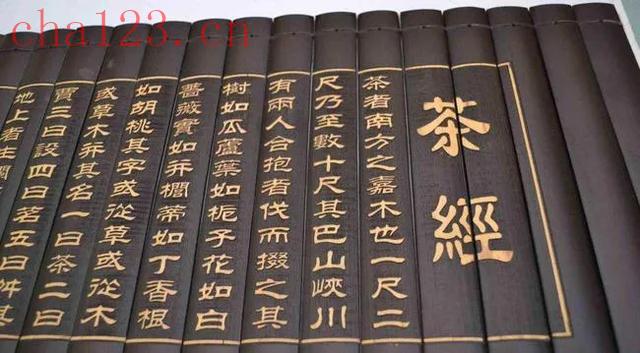 cha123.cn
茶經
茶者南方之嘉木也一尺二
尺乃至數十尺其巴山峽川
有兩人合抱者伐而掇之其
樹如瓜蘆葉如栀子花如白
薔薇實如并櫚蒂如丁香根
如胡桃其字或從草或從木
或草木并其名一曰茶二曰
賈三曰設四曰茗五曰舛其
地上者生